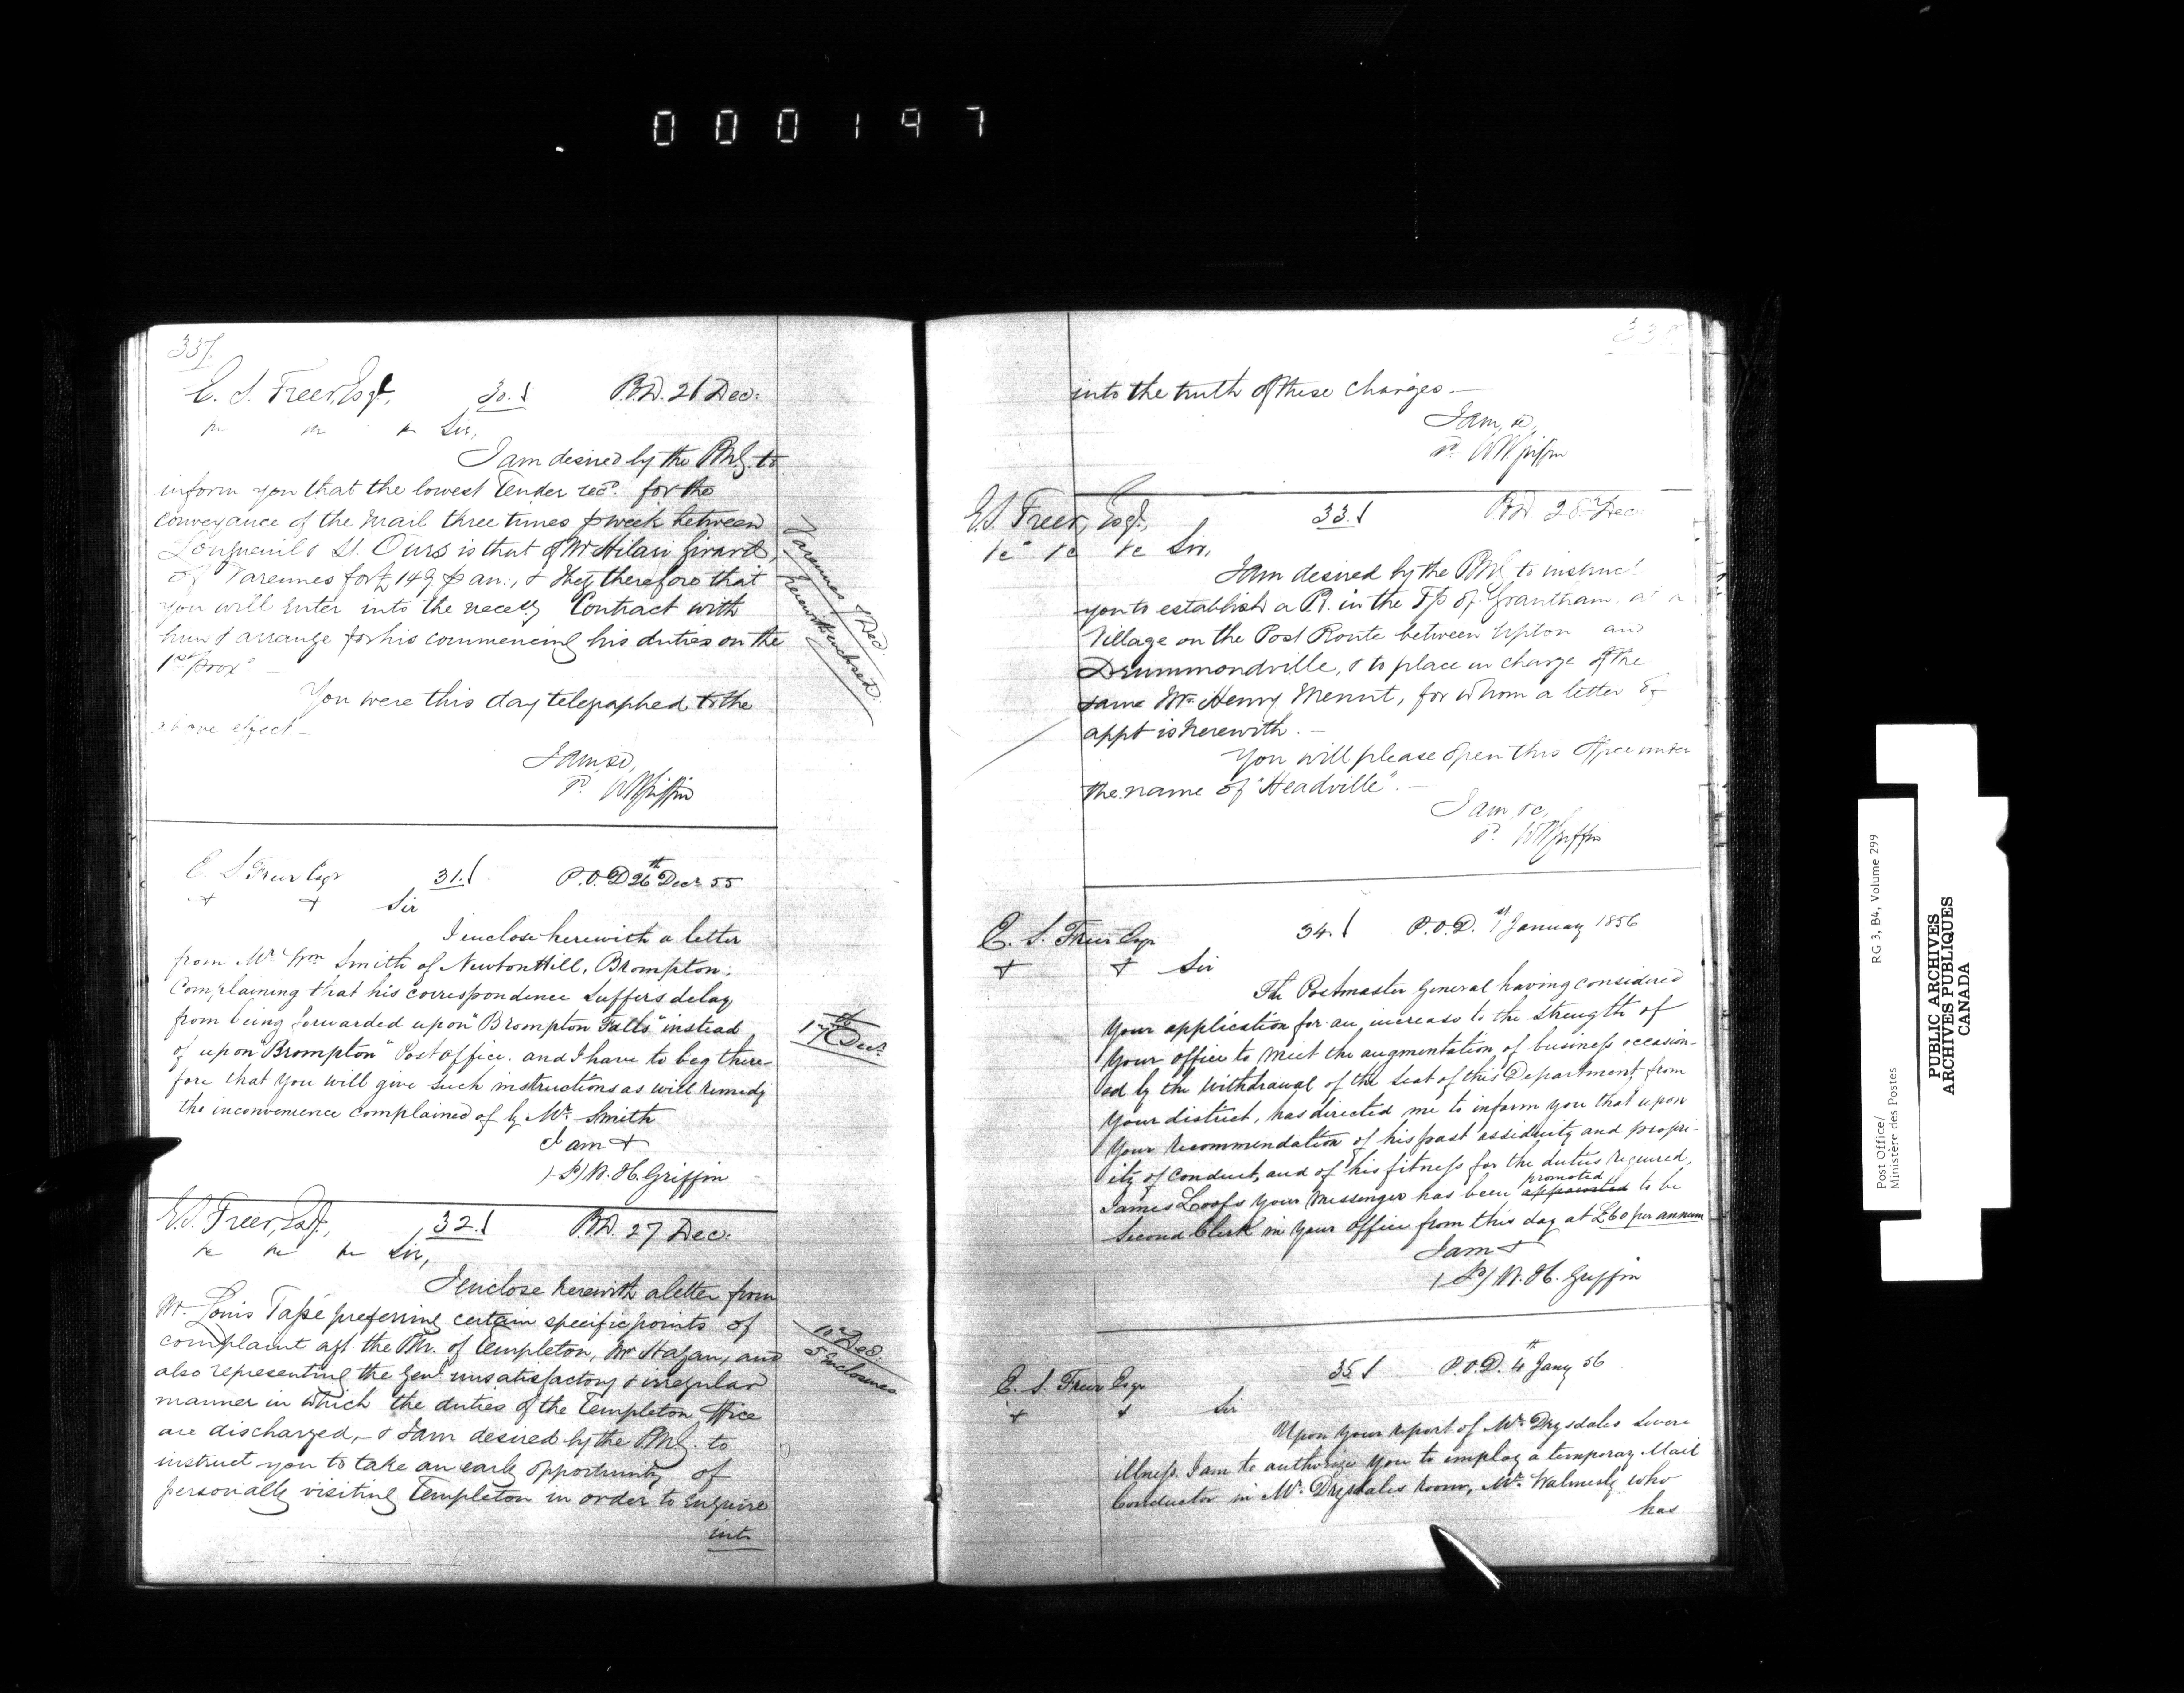 000197
337.
E. S. Freer, Esqr, 30.
P.O.D. 21 Dec:
Sir,
I am desired by the P.M.G. to
inform you that the lowest Tender recd. for the
conveyance of the Mail three times p week between
Longueuil & St. Ours is that of Mr Hilari Girard,
of Varennes for £149 p an:, & I beg therefore that
you will enter into the necessy Contract with
him & arrange for his commencing his duties on the
1st prox
You were this day telegraphed to the
above effect
I am, &c,
W H Griffin
Varennes Dec.
herewith enclosed.
E. S Freer Esqr 31. P.O.D 26th Decr 55
+ + Sir
I enclose herewith a letter
from Mr. Wm Smith of Newton Hill, Brompton.
Complaining that his correspondence suffers delay
from being forwarded upon "Brompton Falls" instead
of upon "Brompton" Post office. and I have to beg there-
fore that you will give such instructions as will remedy
the inconvenience complained of by Mr. Smith
I am +
W. H. Griffin
17th Decr
E. S. Freer, Esqr, 32. P.O.D. 27 Dec.
Sir,
I enclose herewith a letter from
Mr. Louis Tassé preferring certain specific points of
complaint agt the P.Mr. of Templeton, Mr Hagan, and
also representing the Genl unsatisfactory & irregular
manner in which the duties of the Templeton Office
are discharged, & I am desired by the P.M.G. to
instruct you to take an early opportunity of
personally visiting Templeton in order to enquire
into
10th Dec.
5 Enclosures
338
into the truth of these charges
I am, &c,
W H Griffin
E. S. Freer, Esqr, 33. P.O.D 28 Dec
&c &c &c Sir,
I am desired by the P.M.G. to instruct
you to establish a P.O. in the Tp of Grantham at a
Village on the Post Route between Upton and
Drummondville, & to place in charge of the
same Mr Henry Menut, for whom a letter of
appt is herewith.
You will please open this Office under
the name of "Headville".
I am &c,
W H Griffin
E. S. Freer Esqr 34. P.O.D. 1st January 1856
+ + Sir
The Postmaster General having considered
your application for an increase to the strength of
your office to meet the augmentation of business occasion-
ed by the withdrawal of the seat of this Department from
your district, has directed me to inform you that upon
your recommendation of his past assiduity and propri-
ety of conduct, and of his fitness for the duties required,
promoted
James Loofs your Messenger has been appointed to be
Second Clerk in your office from this day at £60 per annum
I am +
W. H. Griffin
E. S. Freer Esqr 35 P.O.D. 4th Jany 56
+ + Sir
Upon your report of Mr. Drysdales severe
illness, I am to authorize you to employ a temporary Mail
Conductor in Mr. Drysdales room, Mr. Walmesly who
has
Post Office/
Ministère des Postes
RG 3, B4, Volume 299
PUBLIC ARCHIVES
ARCHIVES PUBLIQUES
CANADA